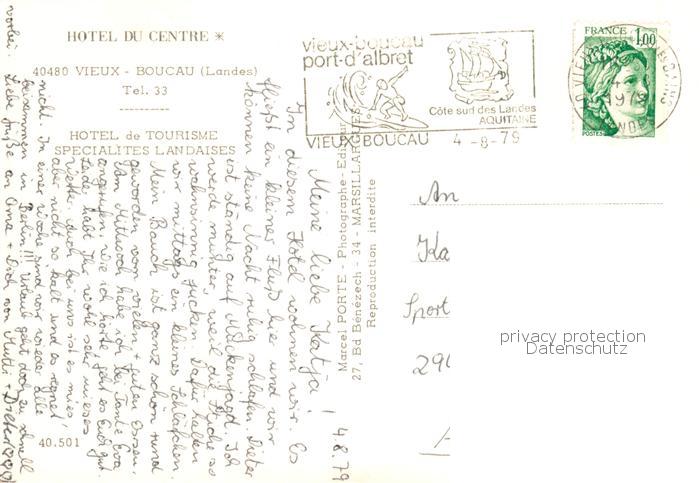 HOTEL DU CENTRE *
40480 VIEUX - BOUCAU (Landes)
Tel. 33
HOTEL de TOURISME
SPECIALITES LANDAISES
40.501
vieux-boucau
port-d'albret
Côte sud des Landes
AQUITAINE
VIEUX-BOUCAU 4-8-79
FRANCE 1,00
POSTES
1979
Marcel PORTE - Photographe - Editeur
27, Bd Bénézech - 34 - MARSILLARGUES
Reproduction interdite
4.8.79
Meine liebe Katja!
In diesem Hotel wohnen wir. Es
fließt ein kleiner Fluß hier und wir
können keine Nacht ruhig schlafen. Dieter
ist ständig auf Mückenjagd. Ich
werde munter, weil die Stiche so
wahnsinnig jucken. Dafür halten
wir mittags ein kleines Schläfchen.
Mein Bauch ist ganz schön rund
geworden vom vielen + guten Essen.
Am Mittwoch habe ich bei Tante Eva
angerufen, wie ich hörte geht es Euch gut.
Leider habt Ihr wohl sehr mieses
Wetter, auch bei uns ist es mies,
aber nicht so kalt und es regnet
nicht. In einer Woche sind wir wieder alle
zusammen in Berlin!!! Urlaub geht doch zu schnell
vorbei. Liebe Grüße an Oma + Dich von Mutti + Dieter
An
Ka
Sport
290
privacy protection
Datenschutz